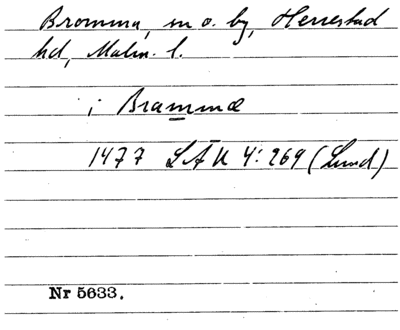 Bromma, sn o. by, Herrestad
hd, Malm. l.
i Brammæ
1477 LÄU 4:269 (Lund)
Nr 5633.